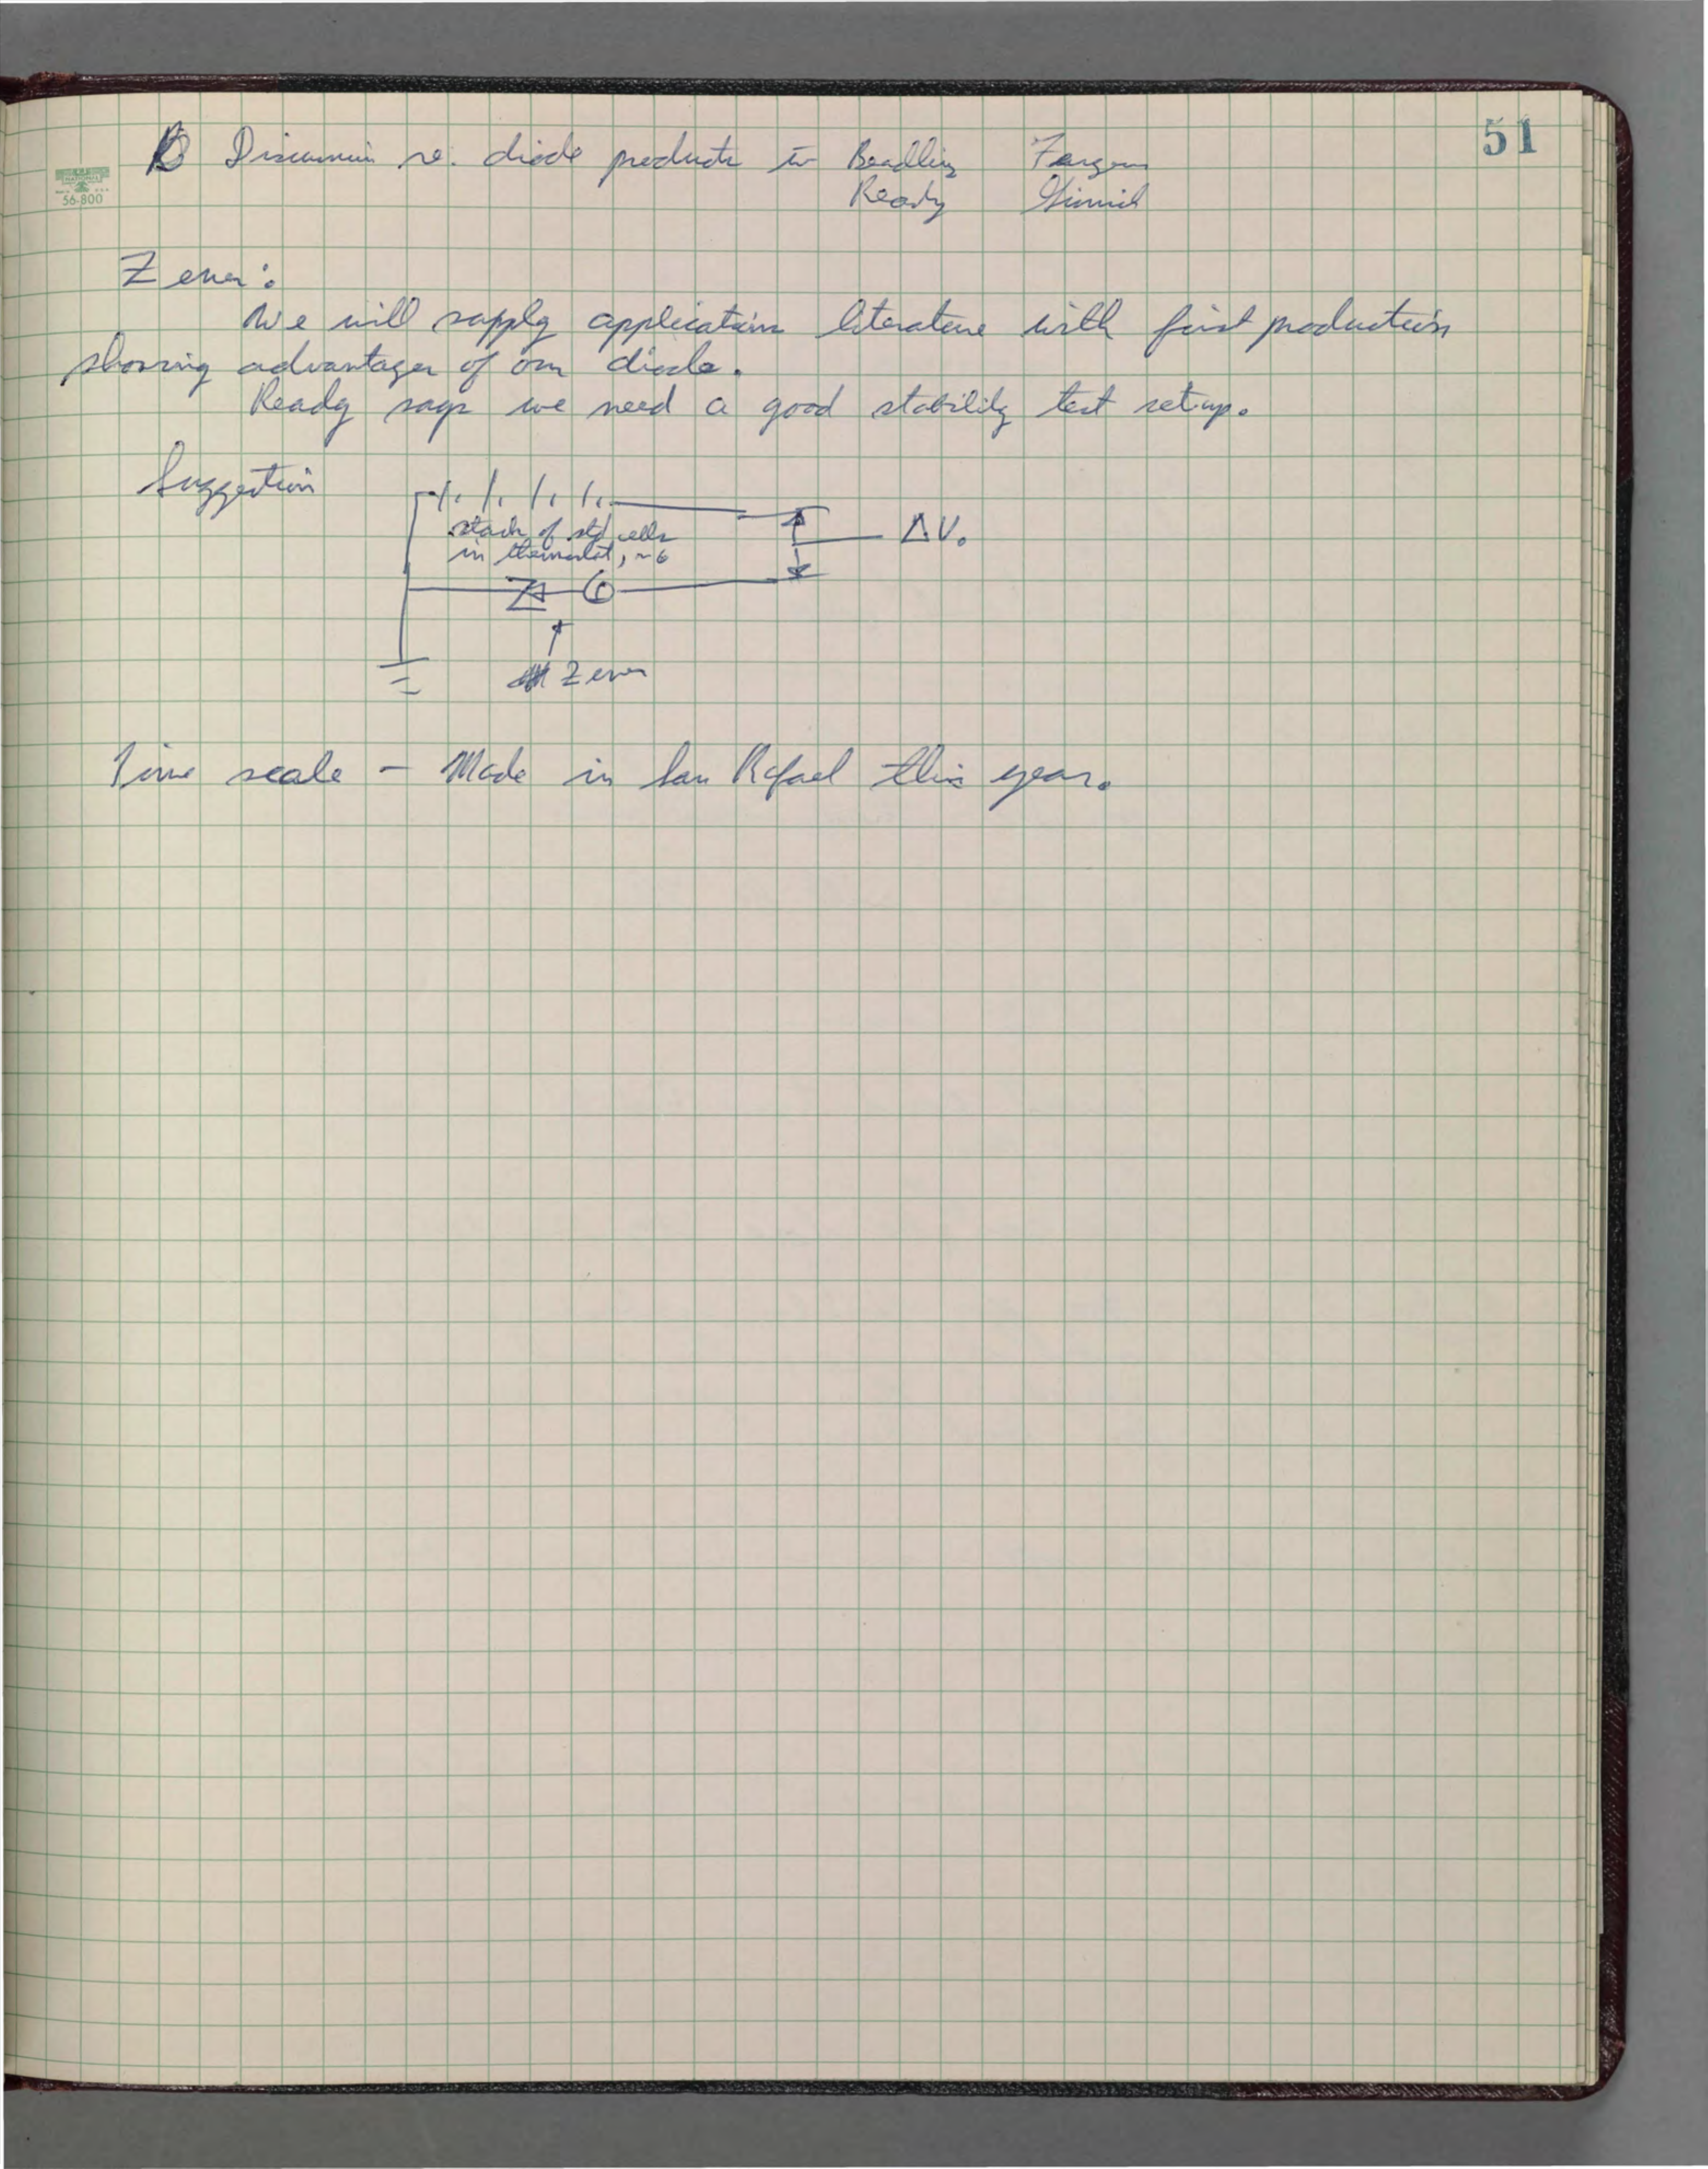 51
Discussion re. diode products w Beadling Ferguson
Ready Grinich
56-800
Zener:
We will supply application literature with first production
showing advantages of our diode.
Ready says we need a good stability test set-up.
Suggestion
stack of std cells
in thermostat, ~6
ΔV.
Zener
Time scale - Made in San Rafael this year.